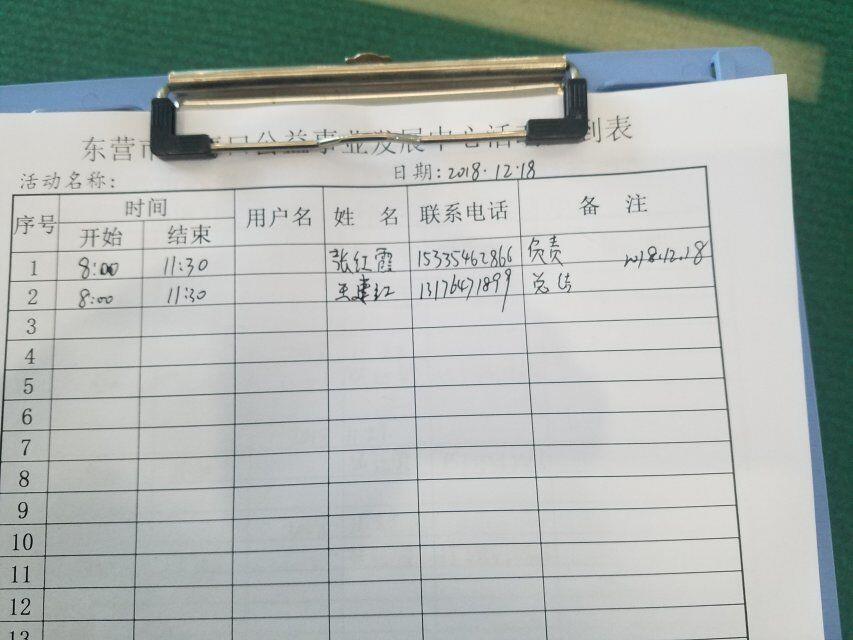 东营市 口公益事业发展中心活 到表
活动名称: 日期:2018.12.18
序号 时间 用户名 姓 名 联系电话 备 注
开始 结束
1 8:00 11:30 张红霞 15335462866 负责 2018.12.18
2 8:00 11:30 王建红 13176471899
3
4
5
6
7
8
9
10
11
12
13